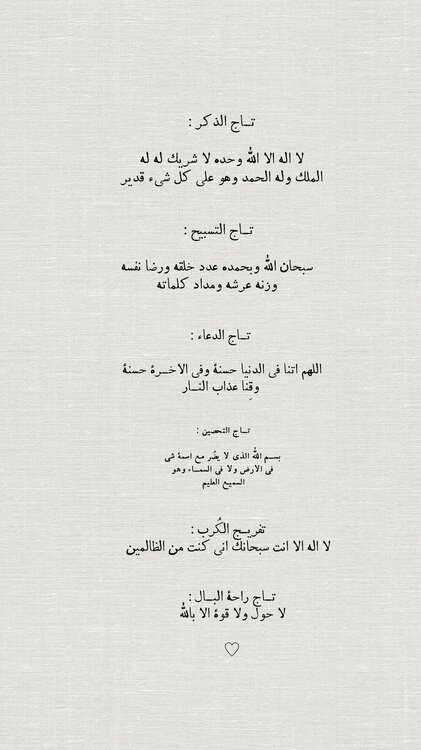 تــاج الذكر :
لا اله الا الله وحده لا شريك له له
الملك وله الحمد وهو على كل شىء قدير
تــاج التسبيح :
سبحان الله وبحمده عدد خلقه ورضا نفسه
وزنه عرشه ومداد كلماته
تــاج الدعاء :
اللهم اتنا فى الدنيا حسنة وفى الاخــرة حسنة
وقِنا عذاب النــار
تــاج التحصين :
بســم الله الذى لا يضُر مع اسمة شى
فى الارض ولا فى السمــاء وهو
السميع العليم
تفريــج الكُرب :
لا اله الا انت سبحانك انى كنت من الظالمين
تــاج راحة البــال :
لا حول ولا قوة الا بالله
♡